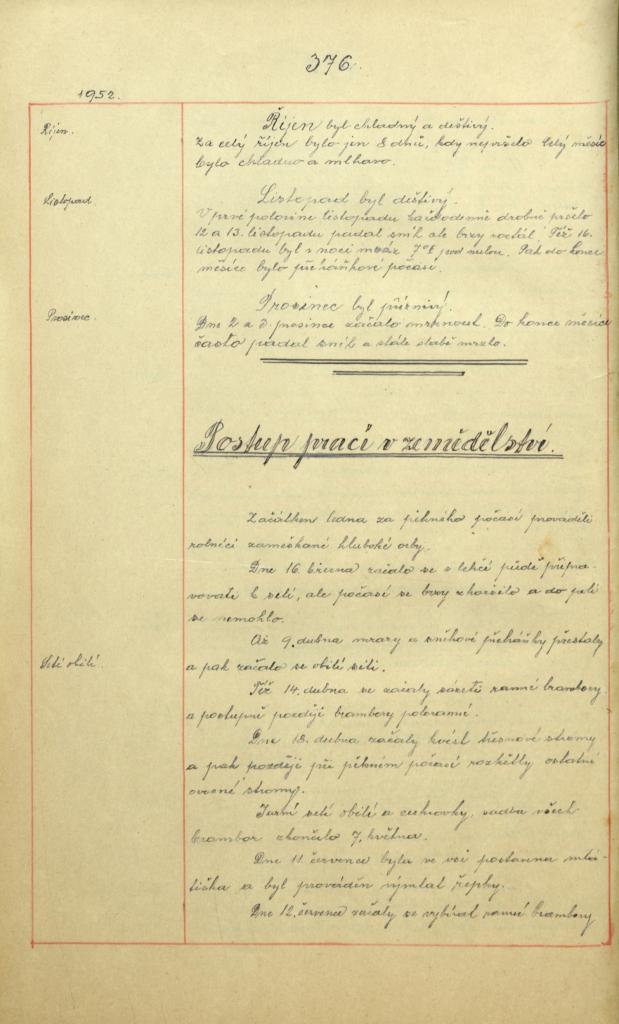 376.
1952.
Říjen.
Říjen byl chladný a deštivý.
Za celý říjen bylo jen 8 dnů, kdy nepršelo. Celý měsíc
bylo chladno a mlhavo.
Listopad
Listopad byl deštivý.
V prvé polovině listopadu každodenně drobně pršelo
12 a 13. listopadu padal sníh ale brzy roztál. Též 16.
listopadu byl v noci mráz 7° pod nulou. Pak do konce
měsíce bylo přeháňkové počasí.
Prosinec.
Prosinec byl příznivý.
Dne 2 a 3. prosince začalo mrznout. Do konce měsíce
často padal sníh a stále slabě mrzlo.
Postup prací v zemědělství.
Začátkem ledna za pěkného počasí prováděli
rolníci zameškané hluboké orby.
Dne 16. března začalo se v lehčí půdě připra-
vovati k setí, ale počasí se brzy zhoršilo a do polí
se nemohlo.
Až 9. dubna mrazy a sněhové přeháňky přestaly
Setí obilí.
a pak začalo se obilí síti.
Též 14. dubna se začaly sázeti ranné brambory
a postupně později brambory poloranné.
Dne 18. dubna začaly kvést třešňové stromy
a pak později při pěkném počasí rozkvětly ostatní
ovocné stromy.
Jarní setí obilí a cukrovky, sadba všech
brambor skončilo 7. května.
Dne 11. července byla ve vsi postavena mlá-
tička a byl prováděn výmlat řepky.
Dne 12. července začaly se vybírat ranné brambory